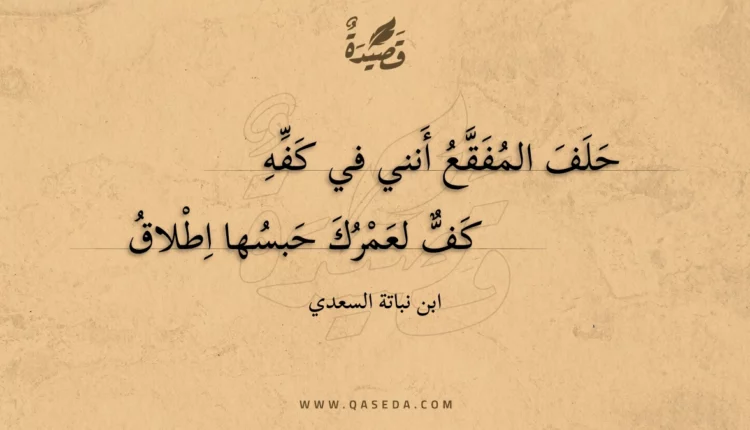 قَصِيْدَةٌ
حَلَفَ المُفَقَّعُ أَنني في كَفِّهِ
كَفٌّ لعَمْرُكَ حَبسُها اِطْلاقُ
ابن نباتة السعدي
WWW.QASEDA.COM